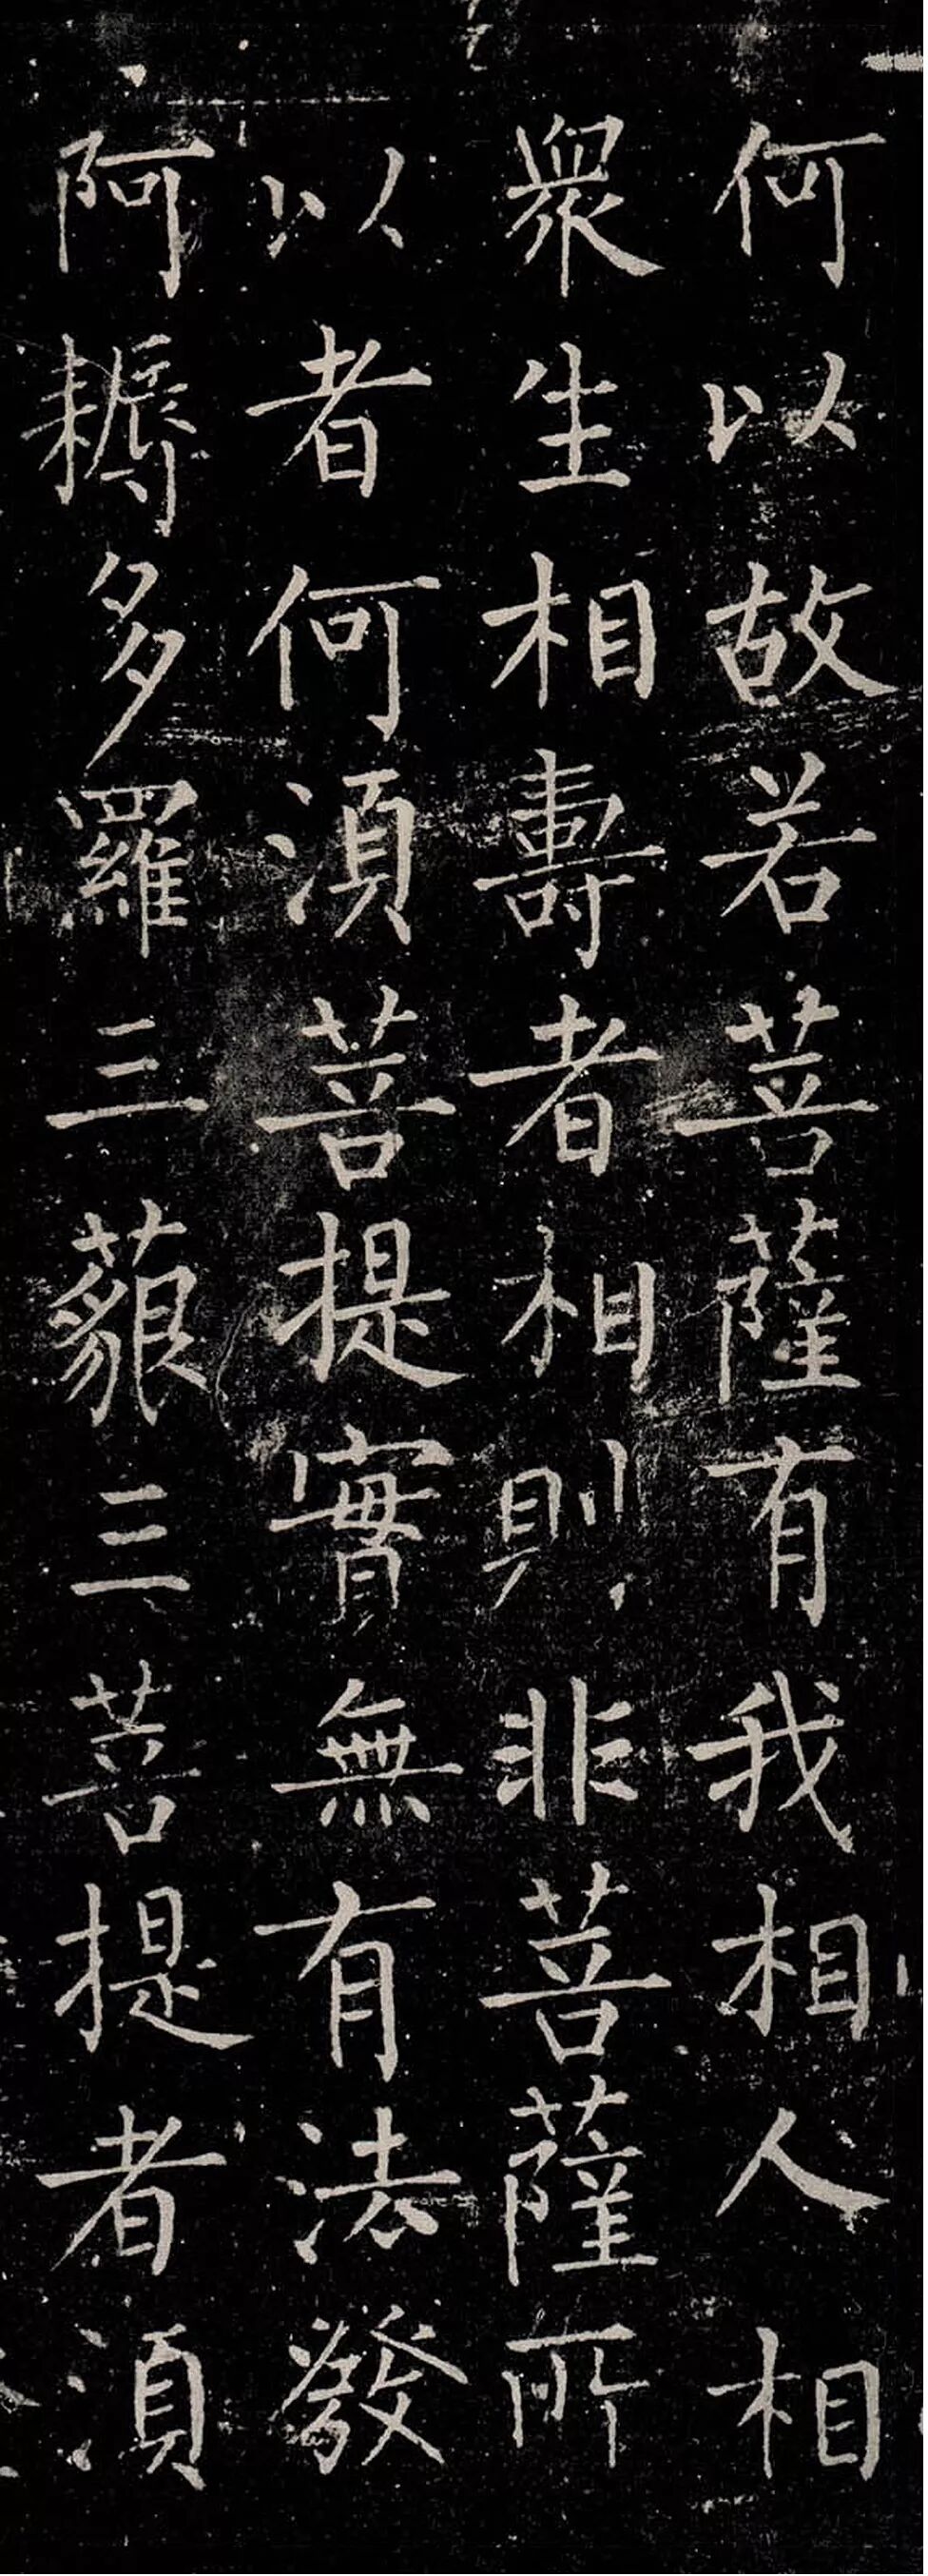 何以故若菩薩有我相人相
衆生相壽者相則非菩薩所
以者何湏菩提實無有法發
阿耨多羅三藐三菩提者湏